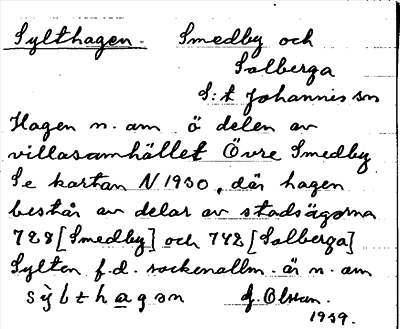 Sylthagen. Smedby och
Salberga
S:t Johannis sn
Hagen n. am ö delen av
villasamhället Övre Smedby
Se kartan N 1930, där hagen
består av delar av stadsägorna
728 [Smedby] och 742 [Salberga]
Sylten f.d. sockenallm. är n. am
G. Olsson.
1939.